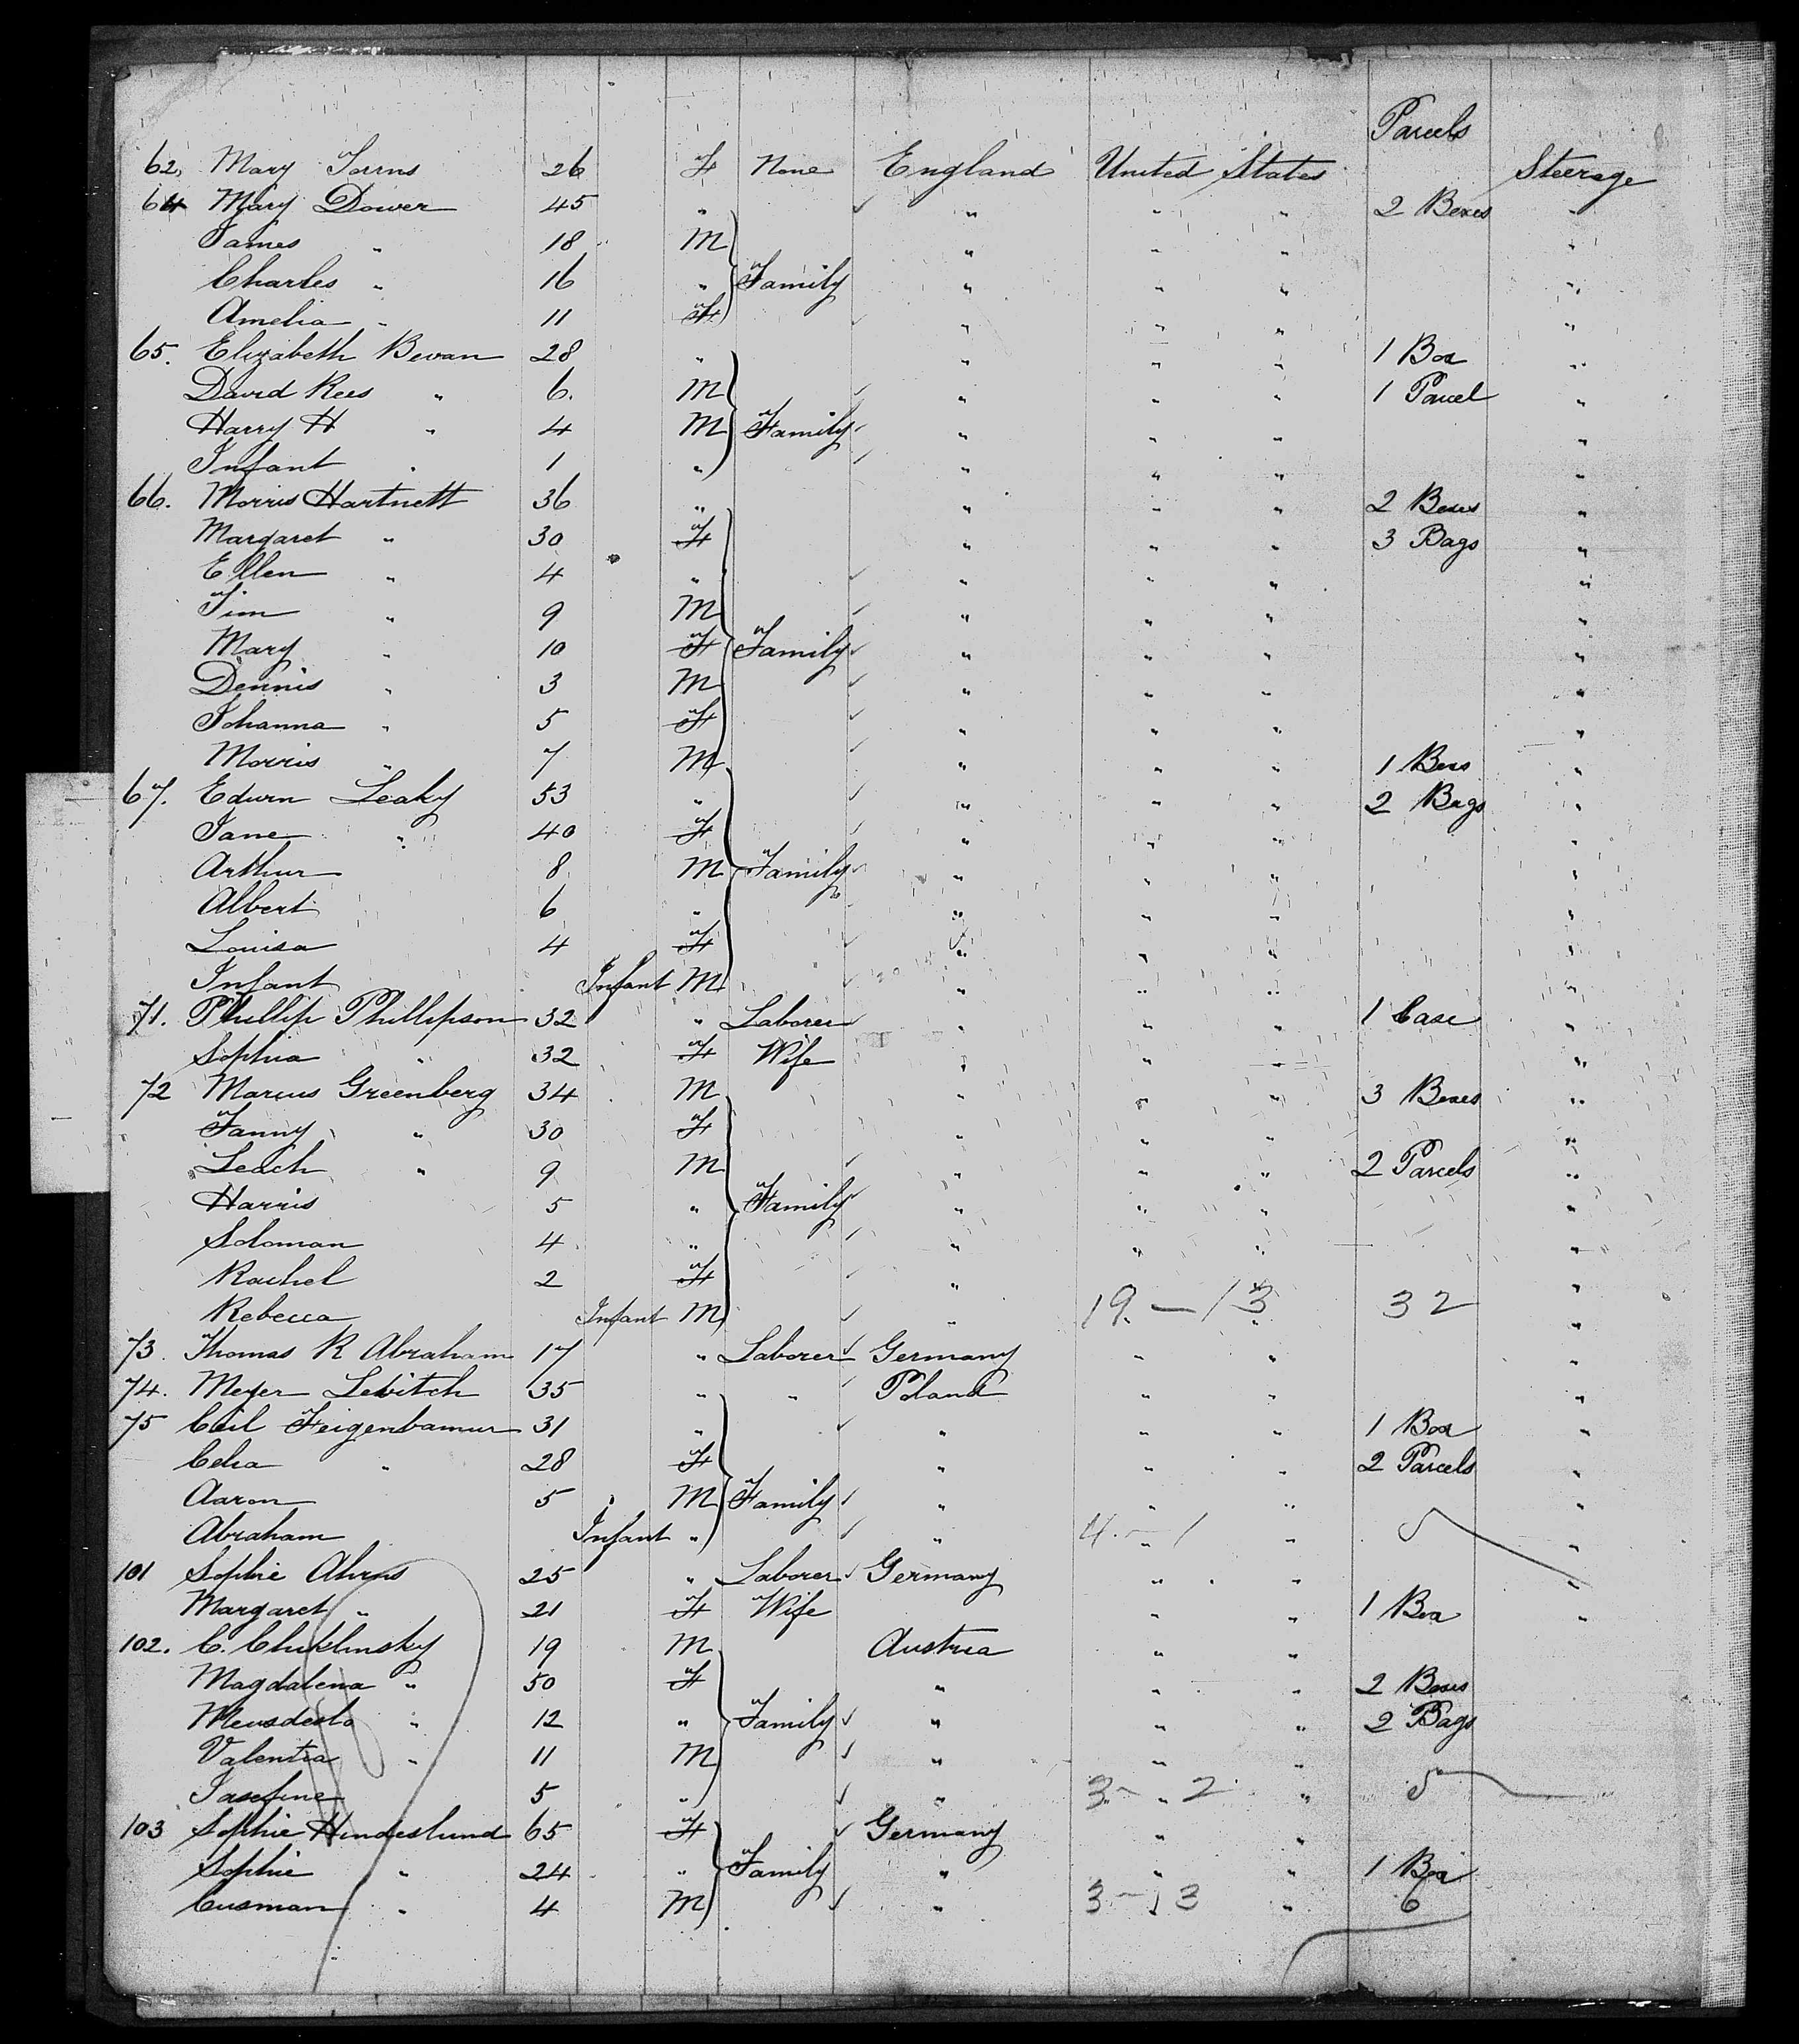 Parcels
62. Mary Torrns 26 F None England United States Steerage
64 Mary Dower 45 " " " " 2 Boxes "
James " 18 M " " " "
Charles " 16 " Family " " " "
Amelia " 11 F " " " "
65. Elizabeth Bevan 28 " " " " 1 Box "
David Rees " 6. M " " " 1 Parcel "
Harry H " 4 M Family " " " "
Infant " 1 " " " " "
66. Morris Hartnett 36 " " " " 2 Boxes "
Margaret " 30 F " " " 3 Bags "
Ellen " 4 " " " " "
Tim " 9 M " " " "
Mary " 10 F Family " " " "
Dennis " 3 M " " " "
Johanna " 5 F " " " "
Morris " 7 M " " " 1 Box "
67. Edwin Leaky 53 " " " " 2 Bags "
Jane " 40 F " " " "
Arthur 8 M Family " " " "
Albert 6 " " " " "
Louisa 4 F " " " "
Infant Infant M " " " "
71. Phillip Phillipson 32 " Laborer " " " 1 Case "
Sophia " 32 F Wife " " " "
72 Marcus Greenberg 34 M " " " 3 Boxes "
Fanny " 30 F " " " "
Leach " 9 M " " " 2 Parcels "
Harris 5 " Family " " " "
Soloman 4 " " " " "
Rachel 2 F " "
Rebecca Infant M " 19 — 13 " 32 "
73. Thomas R Abraham 17 " Laborer Germany " " "
74. Meyer Lebitch 35 " " Poland " " "
75 Ceil Feigenbamur 31 " " " " 1 Box "
Celia " 28 F " " " 2 Parcels "
Aaron 5 M Family " " " "
Abraham Infant " " 4 — 1 " 5 "
101 Sophie Ahrns 25 " Laborer Germany " " "
Margaret " 21 F Wife " " 1 Box "
102. C. Chiklinsky 19 M Austria " "
Magdalena " 50 F " " " 2 Boxes
" 12 " Family " " " 2 Bags
Valentia " 11 M " " "
Josefine 5 " " 3 — 2 " 5
103 Sophie Hindeslund 65 F Germany " "
Sophie " 24 " Family " " " 1 Box
Cusman " 4 M " 3 — 3 " 6